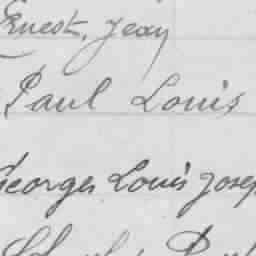 Ernest, Jean
Paul Louis
Georges Louis Josep